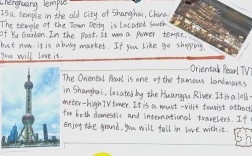 Chenghuang Temple
Is a temple in the old city of Shanghai, China.
The temple of the Town Deity is located south
of Yu Garden. In the Past. It was a Power temple,
but now it is a busy market. If you like go shopping,
you will love it.
Oriental Pearl TV T
The Oriental Pearl is one of the famous landmarks
in Shanghai, located by the Huangpu River. It is a 468-
meter-high TV tower. It is a must-visit tourist attract
for both domestic and international travelers. If
enjoy the grand, you will fell in love with it.